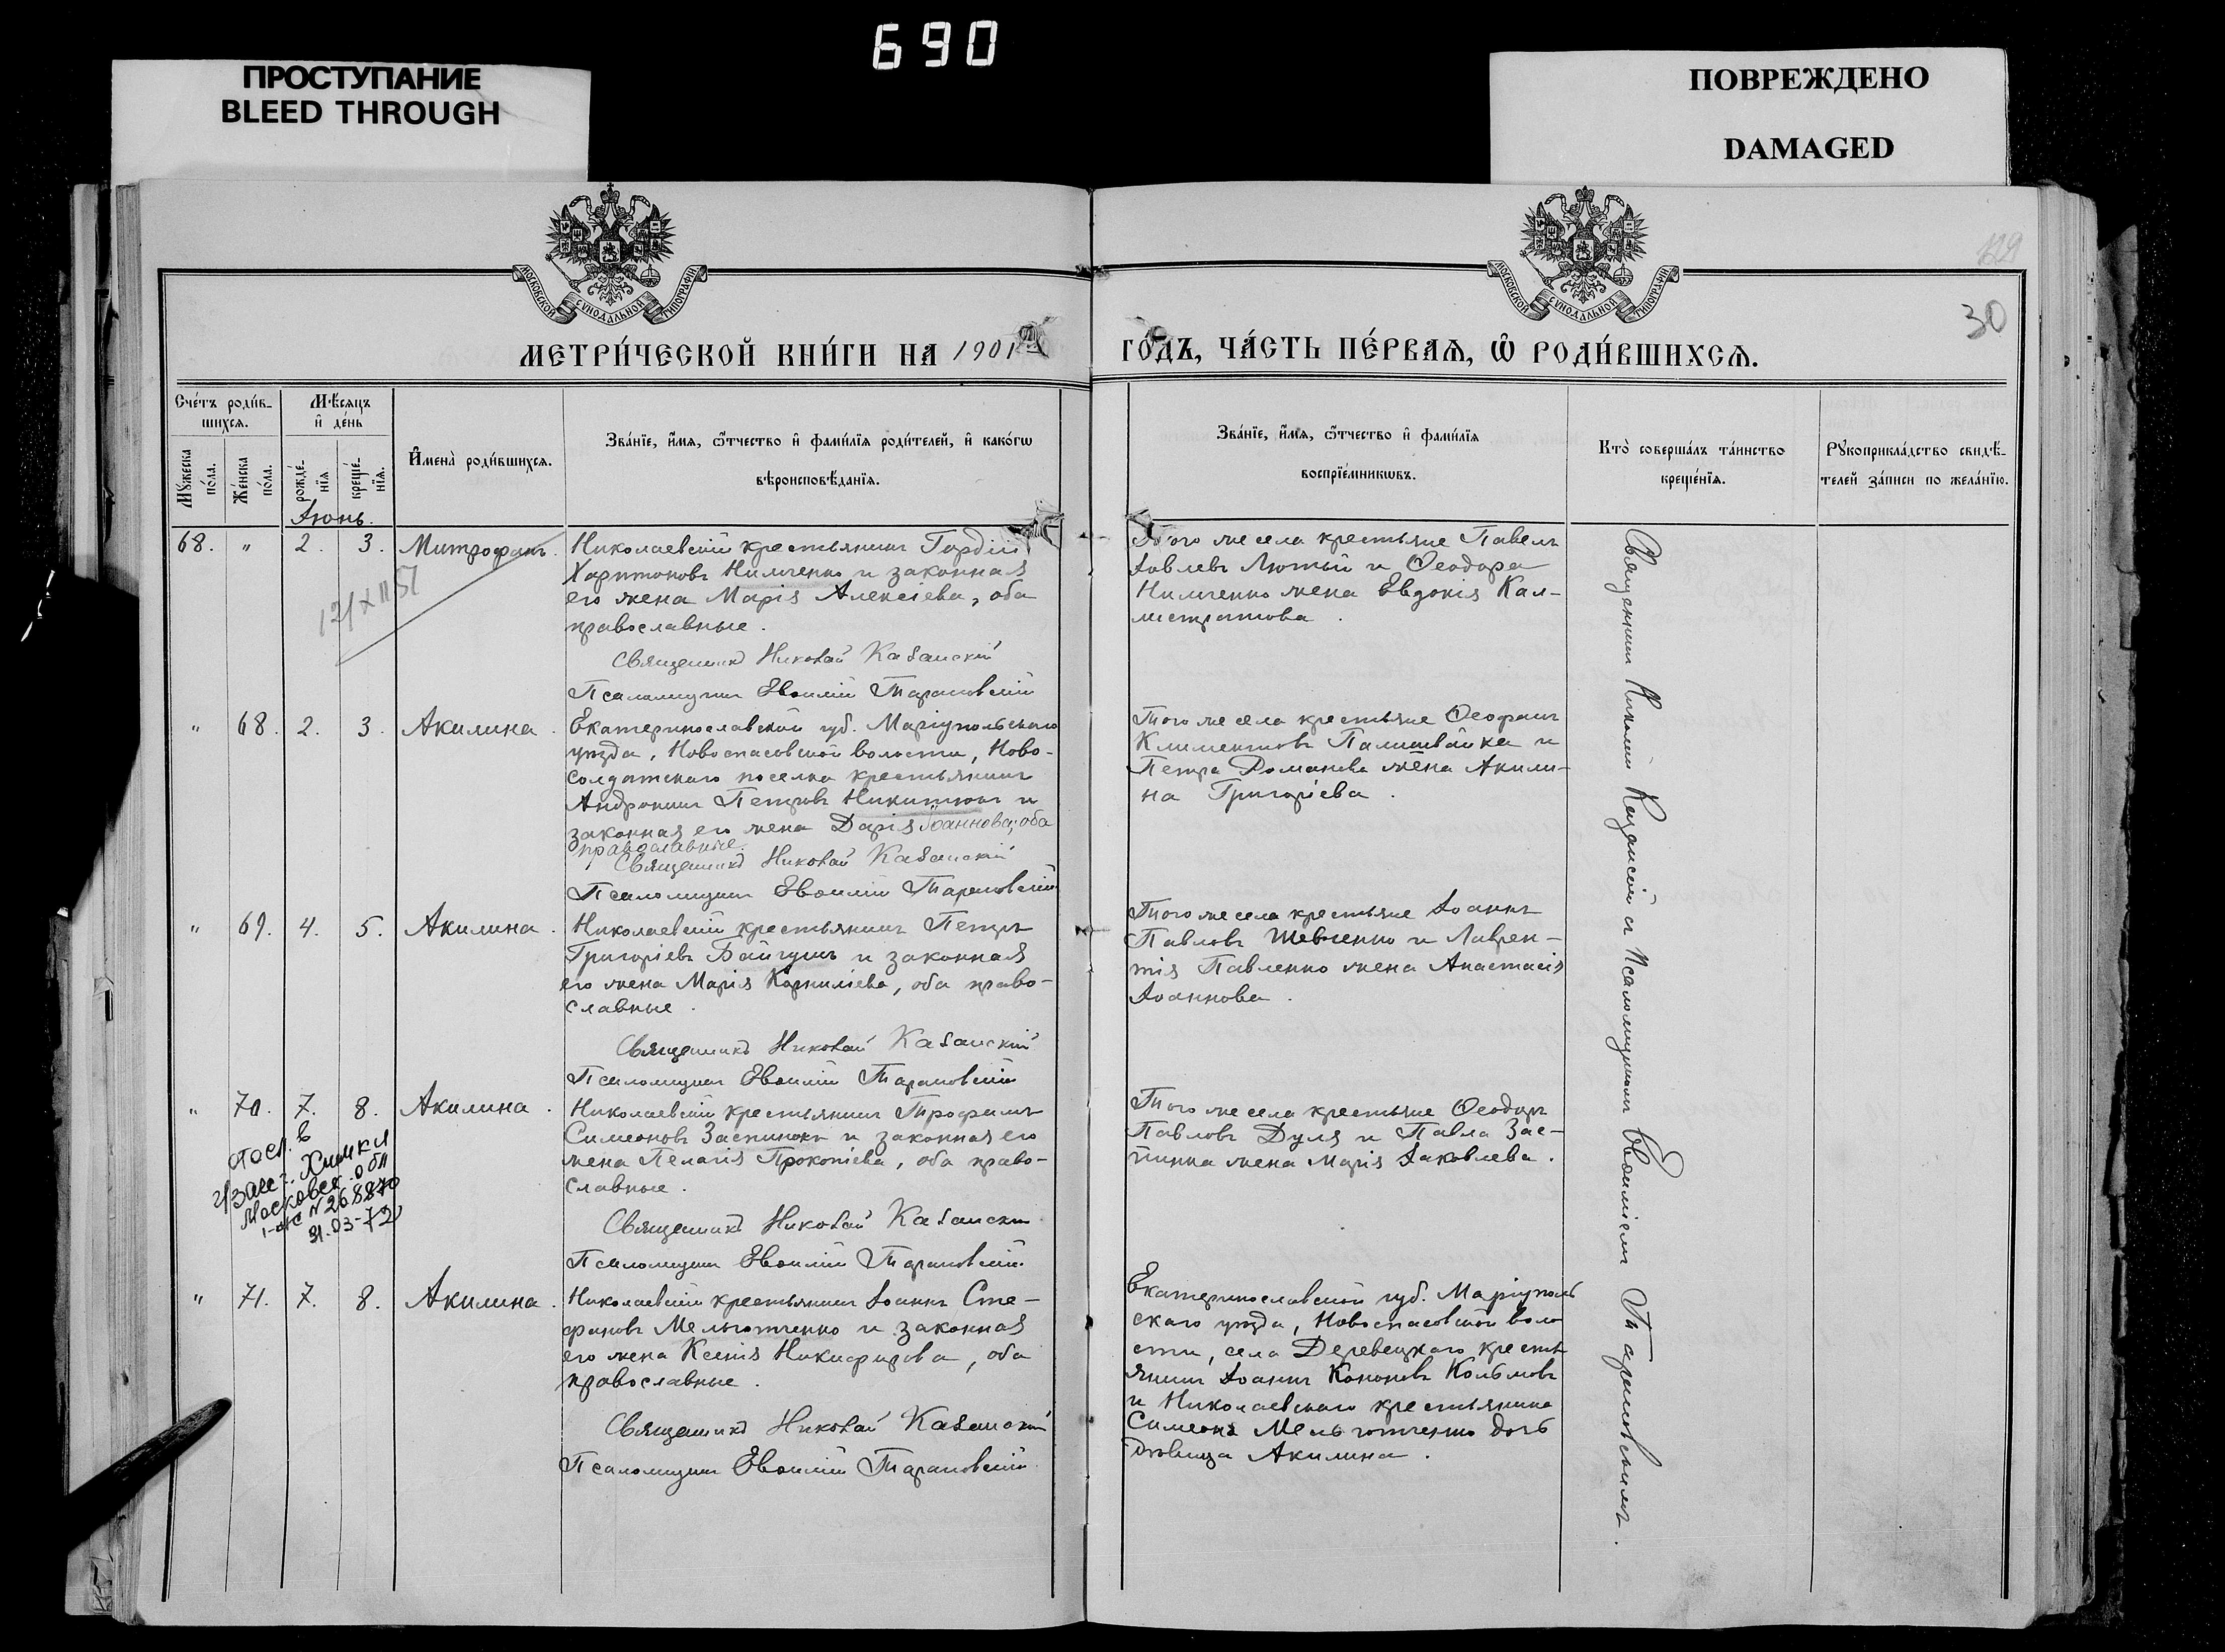 690
ПРОСТУПАНИЕ
BLEED THROUGH
ПОВРЕЖДЕНО
DAMAGED
МОСКОВСКОЙ СУНОДАЛЬНОЙ ТИПОГРАФІИ
МОСКОВСКОЙ СУНОДАЛЬНОЙ ТИПОГРАФІИ
129
30
МЕТРИ́ЧЕСКОЙ КНИ́ГИ НА 1901
ГО́ДЪ, ЧА́СТЬ ПЕ́РВАѦ, Ѡ҆ РОДИ́ВШИХСѦ.
Сче́тъ роди́в-
шихсѧ.
Мѣ́сѧцъ
и҆ де́нь
Мꙋ́жеска по́ла.
Же́нска по́ла.
рожде́-
нїѧ
креще́-
нїѧ.
И҆мена̀ роди́вшихсѧ.
Зва́нїе, и҆́мѧ, ѻ҆́тчество и҆ фами́лїѧ роди́телей, и҆ како́гѡ
вѣроисповѣ́данїѧ.
Зва́нїе, и҆́мѧ, ѻ҆́тчество и҆ фами́лїѧ
воспрїе́мникѡвъ.
Кто̀ соверша́лъ та́инство
креще́нїѧ.
Рꙋкоприкла́дство свидѣ́-
телей за́писи по жела́нїю.
Іюнь.
68. " 2. 3. Митрофанъ.
Николаевскій крестьянинъ Гордій
Харитоновъ Нимченко и законная
его жена Марія Алексіева, оба
православные.
Священникъ Николай Казанскій
Псаломщикъ Евѳимій Тарановскій
Того же села крестьяне Павелъ
Іовлевъ Лютый и Ѳеодора
Нимченко жена Евдокія Кал-
листратова.
" 68. 2. 3. Акилина.
Екатеринославской губ. Маріупольскаго
уѣзда, Новоспасовской волости, Ново-
солдатскаго поселка крестьянинъ
Андроникъ Петровъ Никитюкъ и
законная его жена Дарія Іоаннова, оба
православные.
Священникъ Николай Казанскій
Псаломщикъ Евѳимій Тарановскій
Того же села крестьяне Ѳеофанъ
Климентовъ Паливайка и
Петра Романова жена Акили-
на Григоріева.
" 69. 4. 5. Акилина.
Николаевскій крестьянинъ Петръ
Григоріевъ Байгушъ и законная
его жена Марія Корниліева, оба право-
славные.
Священникъ Николай Казанскій
Псаломщикъ Евѳимій Тарановскій
Того же села крестьяне Іоаннъ
Павловъ Шевченко и Лаврен-
тія Павленко жена Анастасія
Іоаннова.
" 70. 7. 8. Акилина.
Николаевскій крестьянинъ Трофимъ
Симеоновъ Заспинокъ и законная его
жена Пелагія Прокопіева, оба право-
славные.
Священникъ Николай Казанскій
Псаломщикъ Евѳимій Тарановскій
Того же села крестьяне Ѳеодоръ
Павловъ Дуля и Павла Зас-
пинка жена Марія Іаковлева.
в
г/загс г. Химки
Московск. обл
N 268870
31.03-72
" 71. 7. 8. Акилина.
Николаевскій крестьянинъ Іоаннъ Сте-
фановъ Мельготченко и законная
его жена Ксенія Никифорова, оба
православные.
Священникъ Николай Казанскій
Псаломщикъ Евѳимій Тарановскій
Екатеринославской губ. Маріуполь
скаго уѣзда, Новоспасовской воло
сти, села Деревецкаго кресть
янинъ Іоаннъ Кононовъ
и Николаевскаго крестьянина
Симеона Мельготченко дочь
дѣвица Акилина.
Священникъ Николай Казанскій съ Псаломщикомъ Евѳиміемъ Тарановскимъ.